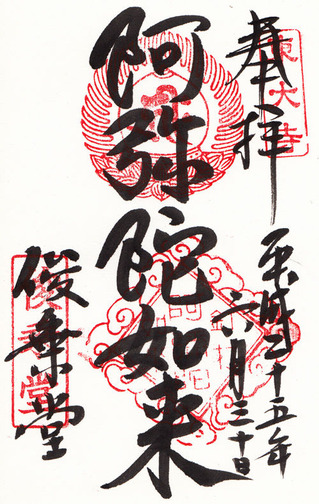 東大寺
奉拝
平成二十五年
六月三十日
阿弥陀如来
俊乗堂
俊乗堂